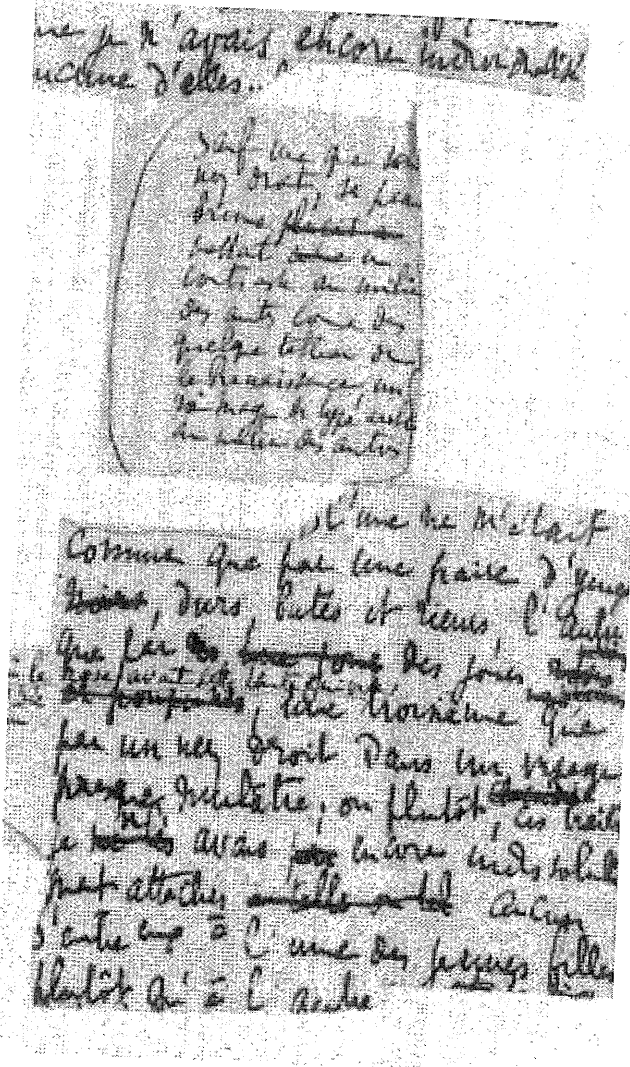 je n'avais encore individualisé
aucune d'elles..
Sauf une que son
nez droit, sa peau
brune
mettait en
contraste au milieu
des autres comme dans
quelque tableau de
la Renaissance, un
roi mage de type arabe
au milieu des autres
l'une ne m'était
connue que par une paire d'yeux
durs, butés et rieurs, l'autre
que par des joues
où le rose avait cette teinte
, une troisième que
par un nez droit dans un visage
presque mulâtre; ou plutôt, ces traits
je n' avais encore indissolublement
attaché aucun
d'entre eux à l'une des jeunes filles
plutôt qu'à l'autre